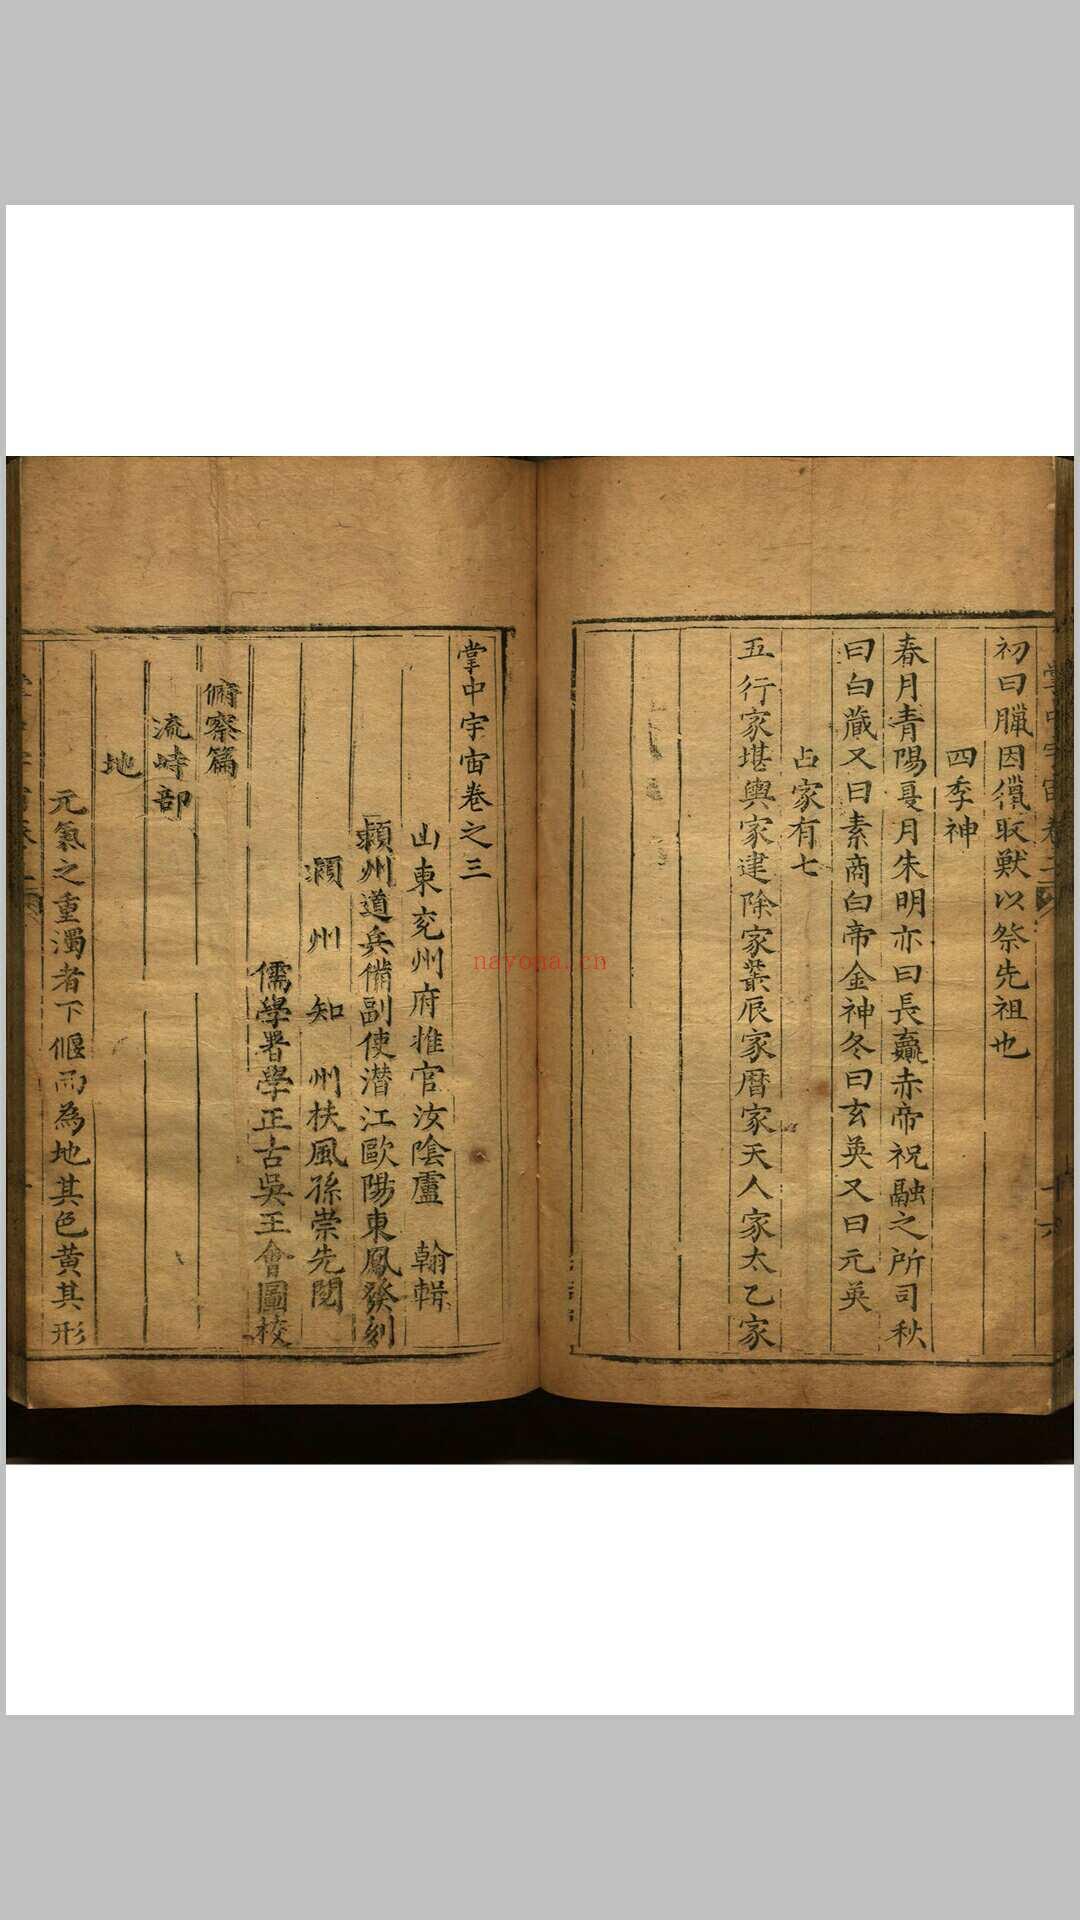 初曰臘因獵取獸以祭先祖也
四季神
春月青陽夏月朱明亦曰長贏赤帝祝融之所司秋
曰白藏又曰素商白帝金神冬曰玄英又曰元英
占家有七
五行家堪輿家建除家叢辰家曆家天人家太乙家
掌中宇宙卷之三
山東兖州府推官汝陰盧 翰輯
潁州道兵備副使潛江歐陽東鳳發刻
潁州知州扶風孫崇先閱
儒學署學正古吳王會圖校
俯察篇
流峙部
地
元氣之重濁者下偃而為地其色黄其形
nayona.cn